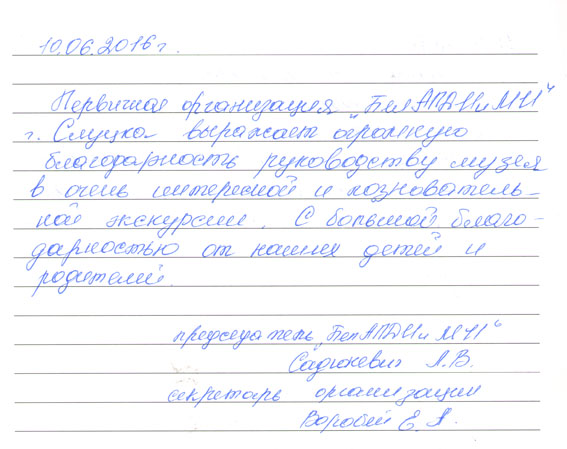 10.06.2016 г.
Первичная организация „БелАПДИиМИ“
г. Слуцка выражает огромную
благодарность руководству музея
в очень интересной и познователь-
ной экскурсии. С большой благо-
дарностью от наших детей и
родителей.
председатель „БелАПДИиМИ“
А.В.
секретарь организации
Воробей Е.А.